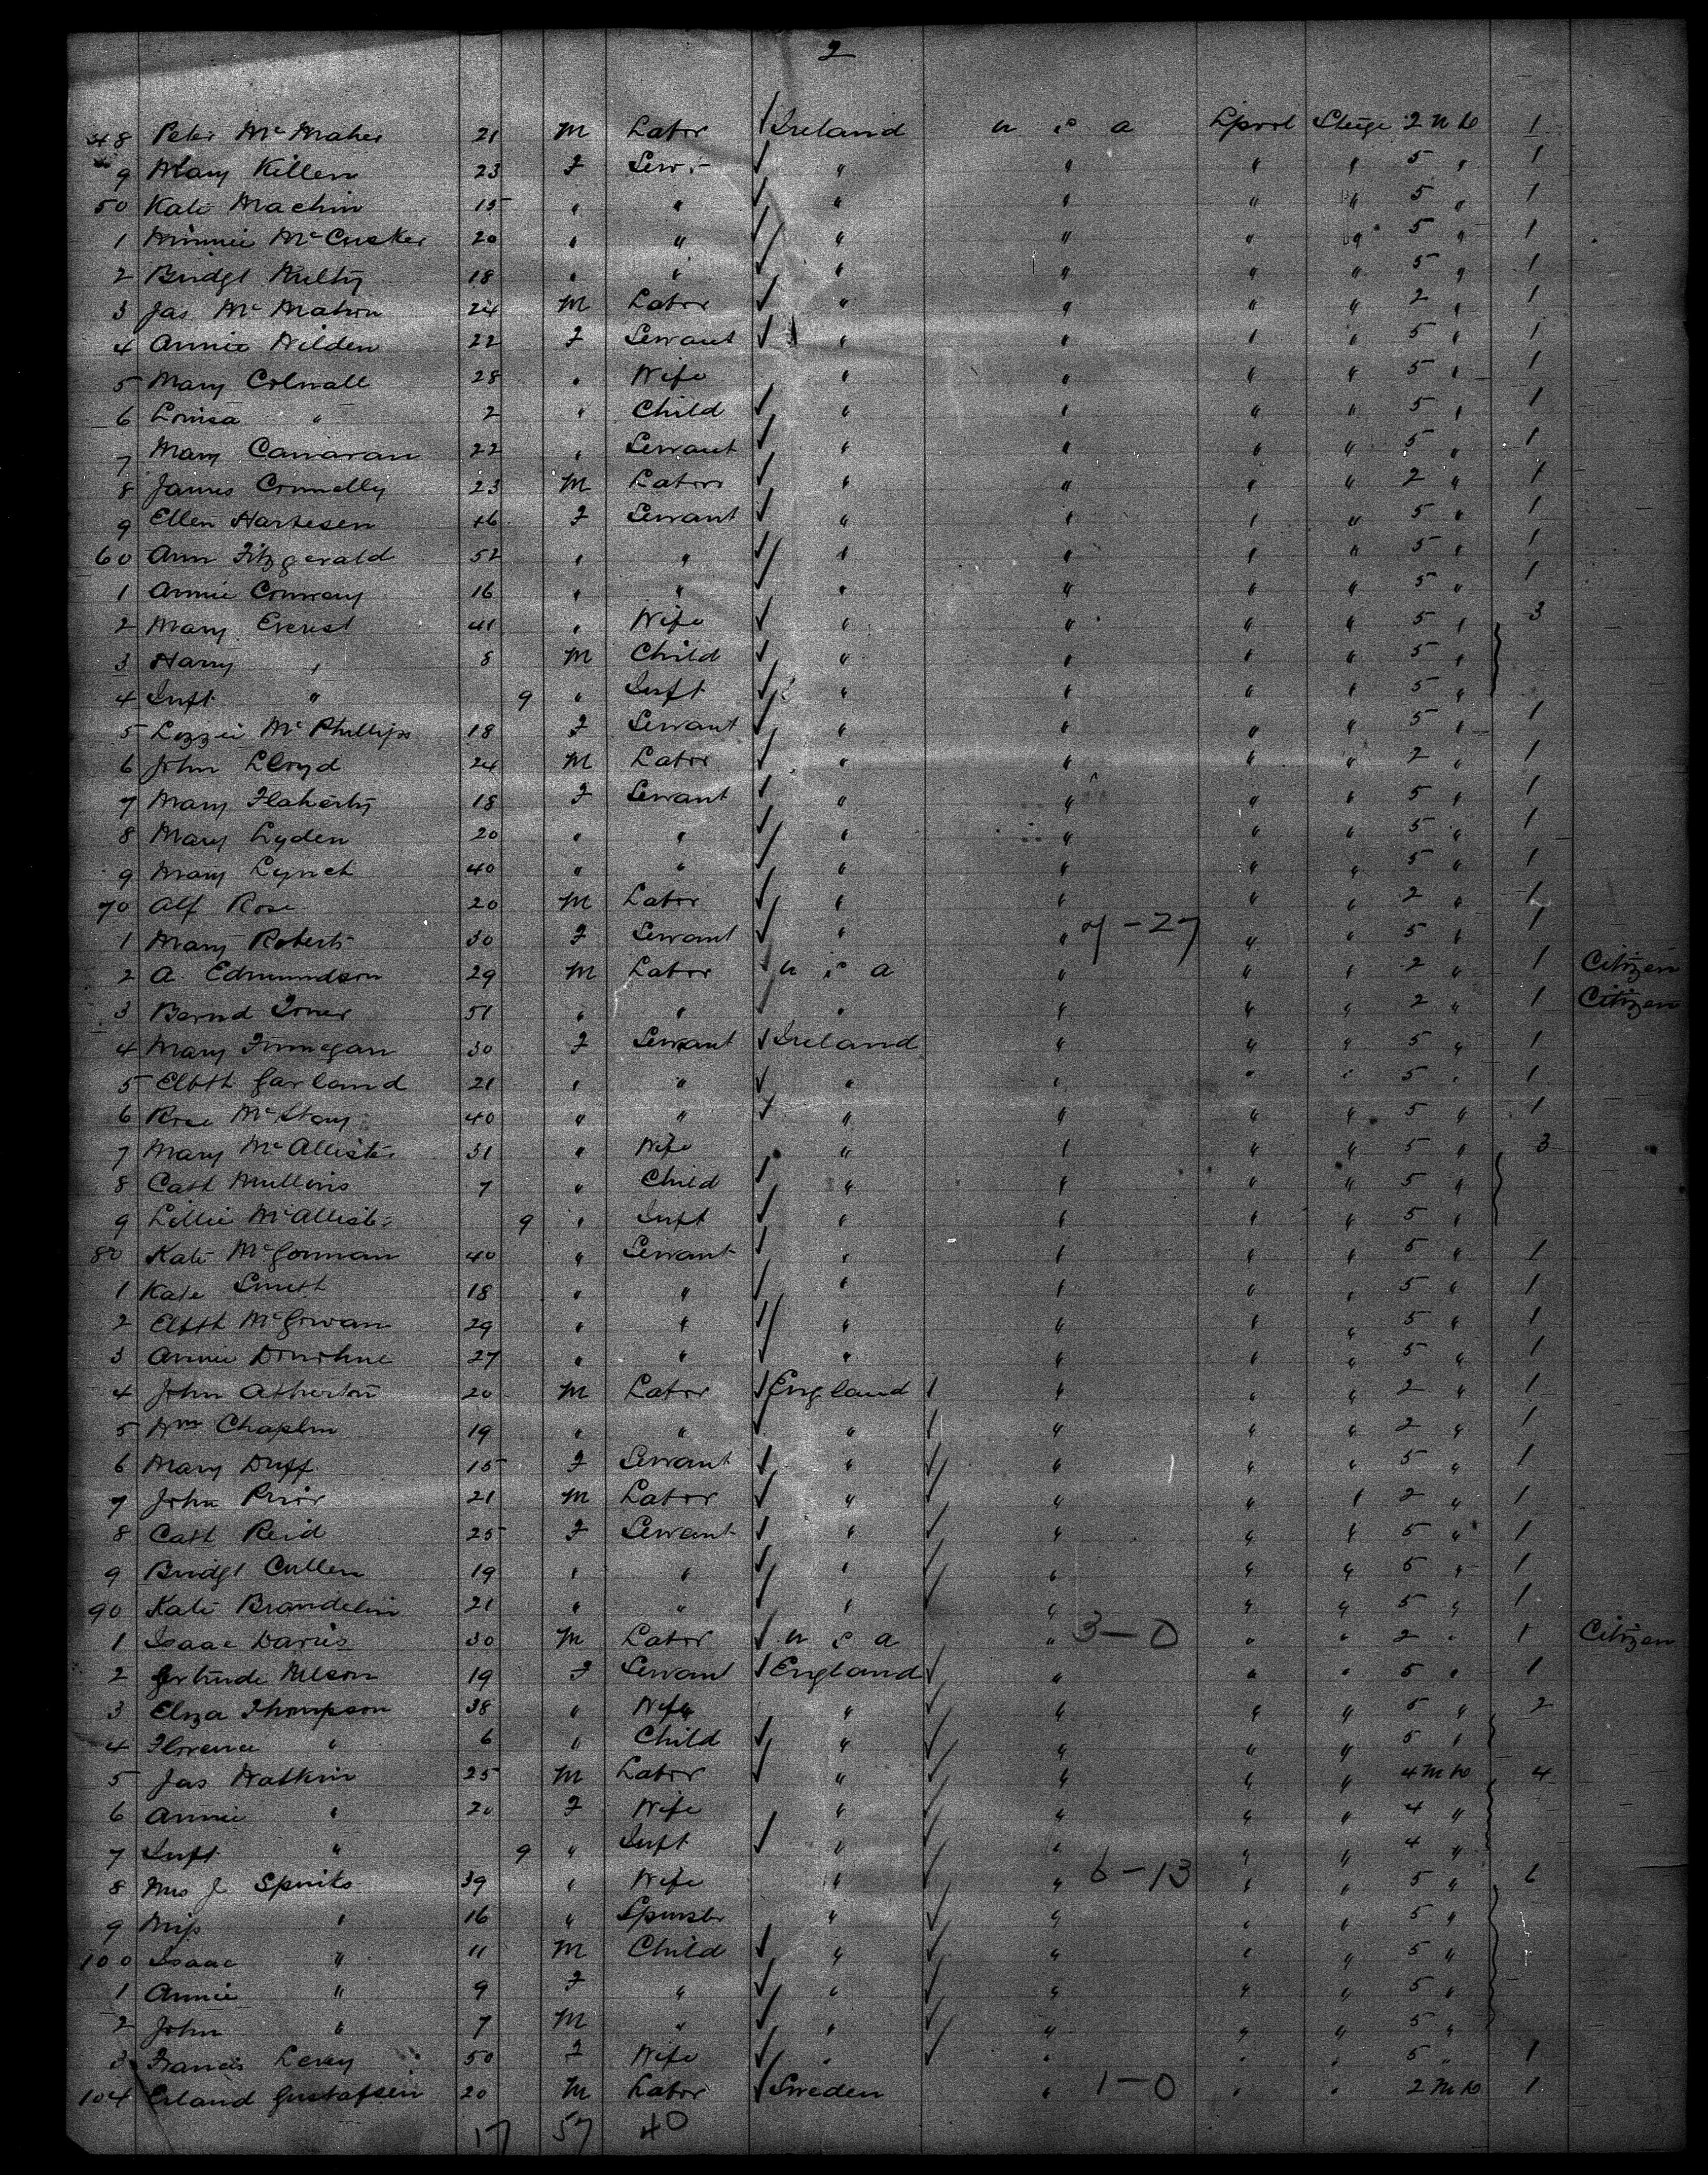 2
48 Peter McMaher 21 M Labor Ireland U S A Lpool Stege 2 1
9 Mary Killen 23 F Serv " " " " 5 " 1
50 Kate Machin 15 " " " " " " 5 " 1
1 Minnie McCusker 20 " " " " " " 5 " 1
2 Bridgt Nulty 18 " " " " " " 5 " 1
3 Jas McMahon 24 M Labor " " " " 2 " 1
4 Annie Wilden 22 F Servant " " " " 5 " 1
5 Mary Colwall 28 " Wife " " " " 5 " 1
6 Louisa " 2 " Child " " " " 5 " 1
7 Mary Canavan 22 " Servant " " " " 5 " 1
8 James Connelly 23 M Labor " " " " 2 " 1
9 Ellen 16 F Servant " " " " 5 " 1
60 Ann Fitzgerald 52 " " " " " " 5 " 1
1 Annie Conway 16 " " " " " " 5 " 1
2 Mary Everest 41 " Wife " " " " 5 " 3
3 Harry " 8 M Child " " " " 5 "
4 Inft " 9 " Inft " " " " 5 "
5 Lizzie McPhillips 18 F Servant " " " " 5 " 1
6 John Lloyd 24 M Labor " " " " 2 " 1
7 Mary Flaherty 18 F Servant " " " " 5 " 1
8 Mary Lyden 20 " " " " " " 5 " 1
9 Mary Lynch 40 " " " " " " 5 " 1
70 Alf Rose 20 M Labor " " " " 2 " 1
1 Mary Roberts 30 F Servant " " 7-27 " " 5 " 1
2 A. Edmundson 29 M Labor U S A " " " 2 " 1 Citizen
3 Bernd Toner 51 " " " " " " 2 " 1 Citizen
4 Mary Finnegan 30 F Servant Ireland " " " 5 " 1
5 Elbth Garland 21 " " " " " " 5 " 1
6 Rose McStay 40 " " " " " " 5 " 1
7 Mary McAllister 31 " Wife " " " " 5 " 3
8 Cath Mullins 7 " Child " " " " 5 "
9 Lillie McAllister 9 " Inft " " " " 5 "
80 Kate McGorman 40 " Servant " " " " 5 " 1
1 Kate Smith 18 " " " " " " 5 " 1
2 Elbth McGowan 29 " " " " " " 5 " 1
3 Annie Donohue 27 " " " " " " 5 " 1
4 John Atherton 20 M Labor England " " " 2 " 1
5 Wm Chaplin 19 " " " " " " 2 " 1
6 Mary Duff 15 F Servant " " " " 5 " 1
7 John Prior 21 M Labor " " " " 2 " 1
8 Cath Reid 25 F Servant " " " " 5 " 1
9 Bridgt Cullen 19 " " " " " " 5 " 1
90 Kate Brandelin 21 " " " " " " 5 " 1
1 Isaac Davis 30 M Labor U S A " 3-0 " " 2 " 1 Citizen
2 Gertrude Nelson 19 F Servant England " " " 5 " 1
3 Eliza Thompson 38 " Wife " " " " 5 " 2
4 Florence " 6 " Child " " " " 5 "
5 Jas Watkin 25 M Labor " " " " 4 4
6 Annie " 20 F Wife " " " " 4 "
7 Inft " 9 " Inft " " " " 4 "
8 Mrs J Spinks 39 " Wife " " 6-13 " " 5 " 6
9 Miss " 16 " Spinster " " " " 5 "
100 Isaac " 11 M Child " " " " 5 "
1 Annie " 9 F " " " " " 5 "
2 John " 7 M " " " " " 5 "
3 Francis Levey 50 F Wife " " " " 5 " 1
104 Erland Gustafsen 20 M Labor Sweden " 1-0 " " 2 1
17 57 40